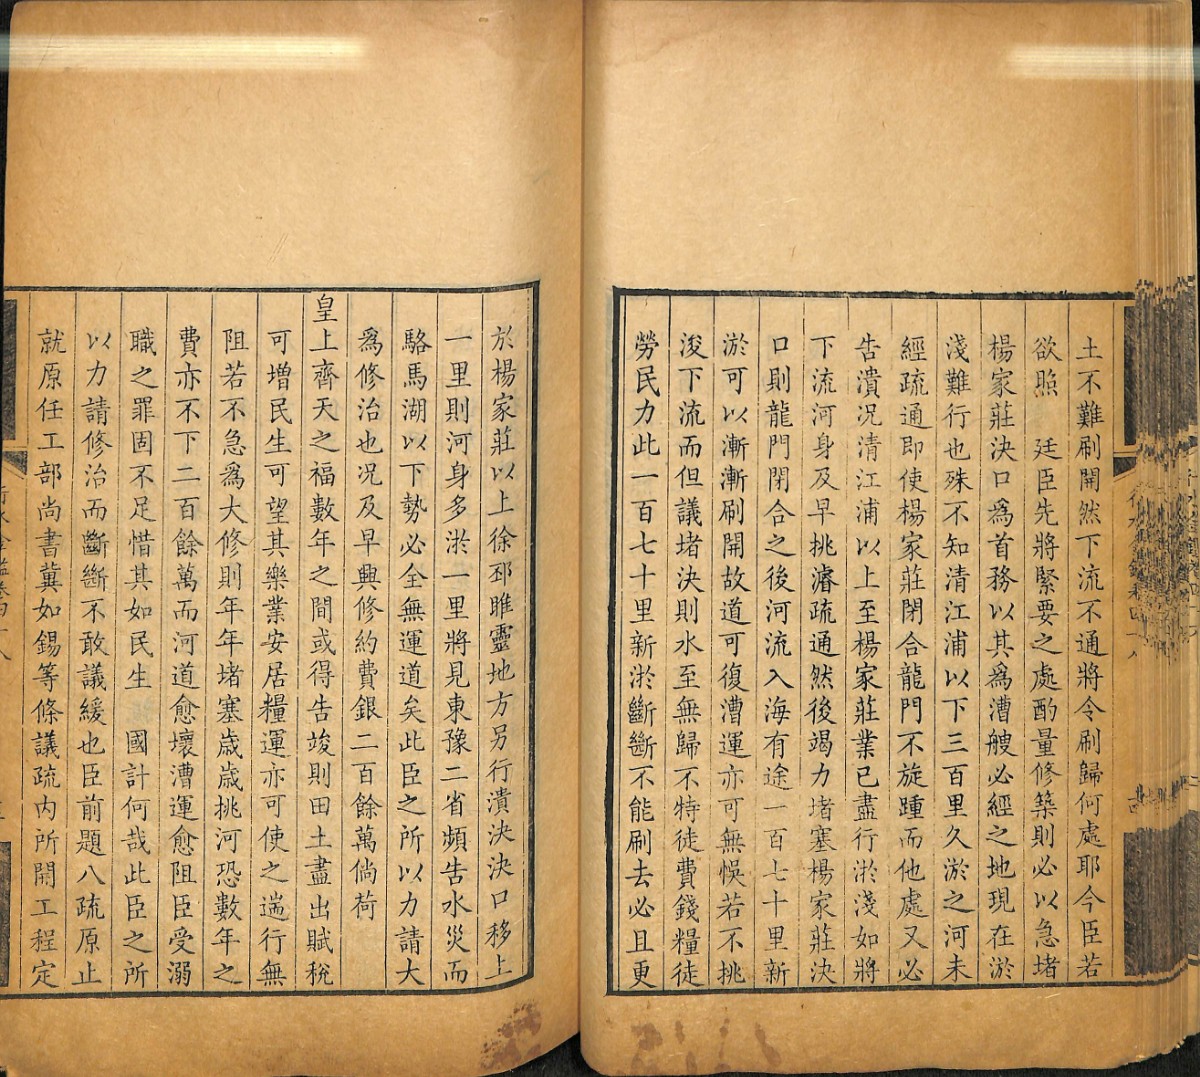 土不難刷開然下流不通將令刷歸何處耶今臣若
欲照　廷臣先將緊要之處酌量修築則必以急堵
楊家莊決口為首務以其為漕艘必經之地現在淤
淺難行也殊不知清江浦以下三百里久淤之河未
經疏通即使楊家莊閉合龍門不旋踵而他處又必
告潰況清江浦以上至楊家莊業已盡行淤淺如將
下流河身及早挑濬疏通然後竭力堵塞楊家莊決
口則龍門閉合之後河流入海有途一百七十里新
淤可以漸漸刷開故道可復漕運亦可無悞若不挑
浚下流而但議堵決則水至無歸不特徒費錢糧徒
勞民力此一百七十里新淤斷斷不能刷去必且更
於楊家莊以上徐邳睢靈地方另行潰決決口移上
一里則河身多淤一里將見東豫二省頻告水災而
駱馬湖以下勢必全無運道矣此臣之所以力請大
為修治也况及早興修約費銀二百餘萬倘荷
皇上齊天之福數年之間或得告竣則田土盡出賦稅
可增民生可望其樂業安居糧運亦可使之遄行無
阻若不急為大修則年年堵塞歲歲挑河恐數年之
費亦不下二百餘萬而河道愈壞漕運愈阻臣受溺
職之罪固不足惜其如民生　國計何哉此臣之所
以力請修治而斷斷不敢議緩也臣前題八疏原止
就原任工部尚書冀如錫等條議疏內所開工程定